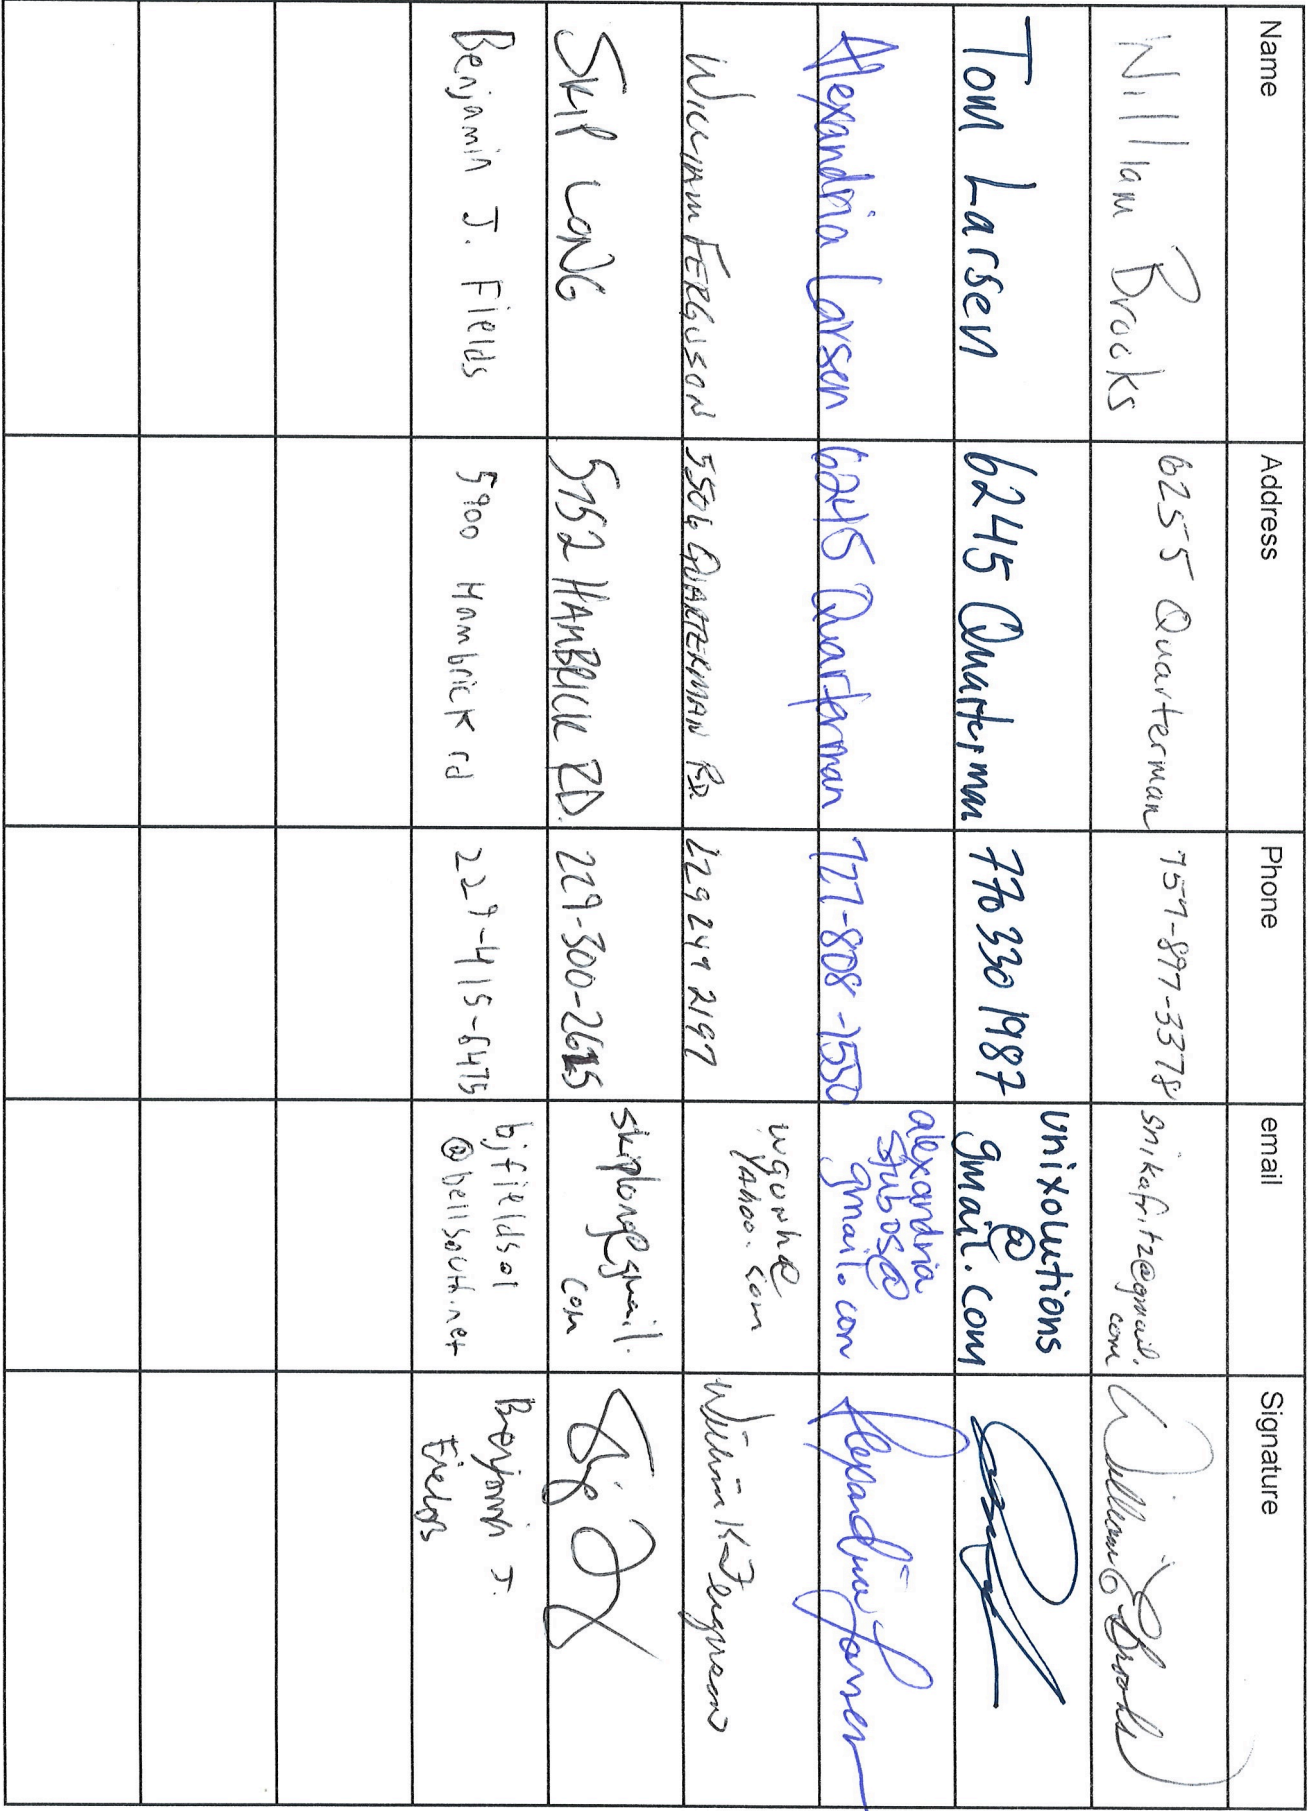 Name Address Phone email Signature
William Brooks 6255 Quarterman 757-897-3378 snikafritz@gmail.
com
Tom Larsen 6245 Quarterman 770 330 1987 unixolutions
@
gmail.com
Alexandria Larsen 6245 Quarterman 727-808-1550 alexandria
stubos@
gmail.com Alexandria Larsen
William FERGUSON 5506 QUARTERMAN RD 229 247 2197 wgunh@
yahoo.com William K Ferguson
SKIP LONG 5152 HAMBRICK RD. 229-300-2615 skiplong@gmail.
com
Benjamin J. Fields 5900 Hambrick rd 229-415-6475 bjfields01
@bellsouth.net Benjamin J.
Fields